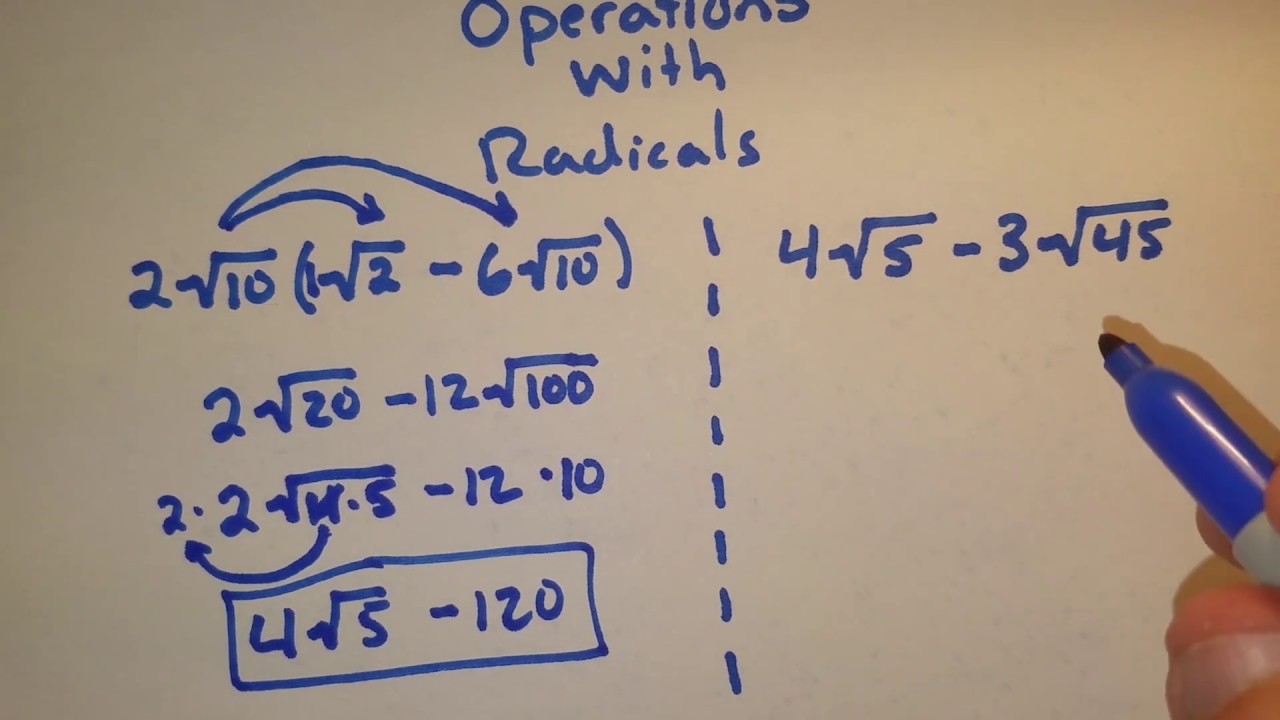 Operations
With
Radicals
2√10(1√2 - 6√10)
2√20 - 12√100
2·2√4·5 - 12·10
4√5 - 120
4√5 - 3√45